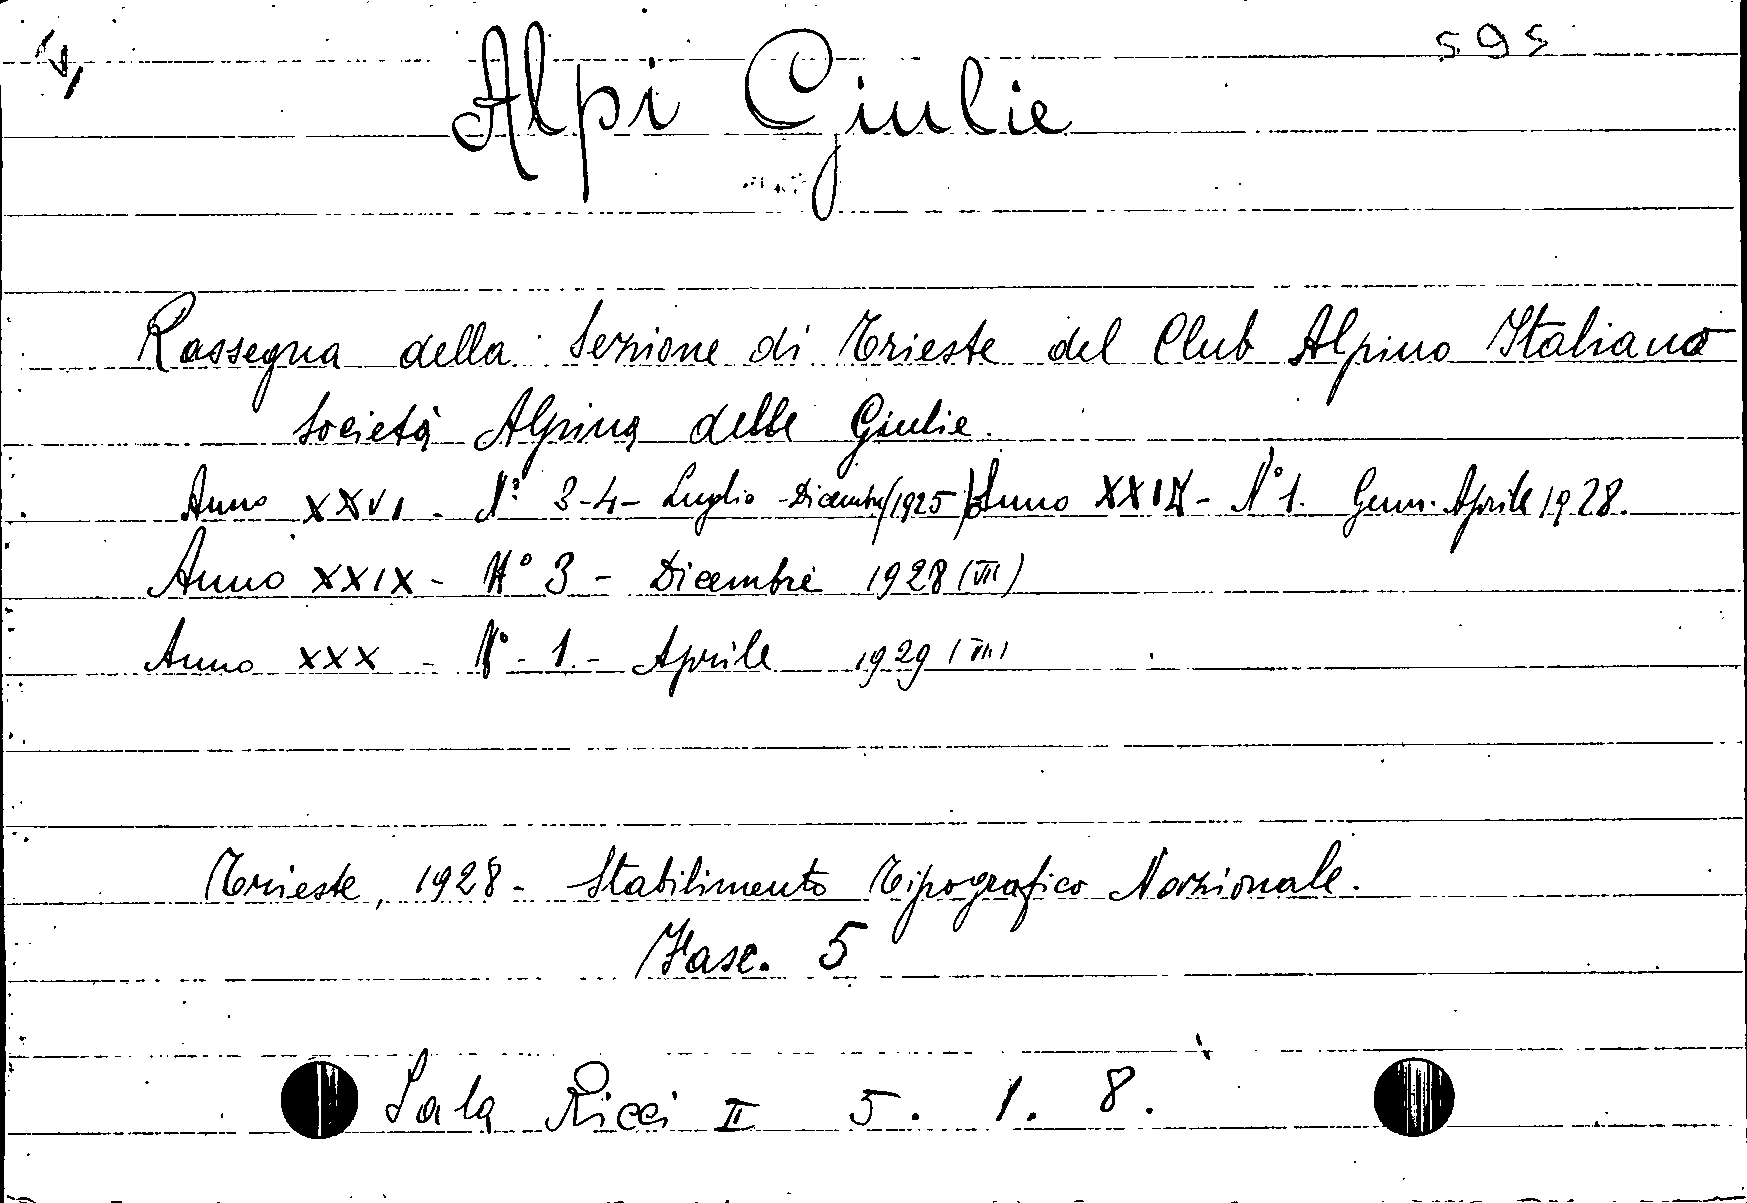 595
Alpi Giulie
Rassegna della Sezione di Trieste del Club Alpino Italiano
Società Alpina delle Giulie.
Anno XXVI - N° 3-4 - Luglio - Dicembre (1925) Anno XXIX - N° 1. Genn. Aprile 1928.
Anno XXIX - N° 3 - Dicembre 1928 (VII)
Anno XXX - N° - 1 - Aprile 1929 (VII)
Trieste, 1928 - Stabilimento Tipografico Nazionale.
Fasc. 5
Sala Ricci II 5. 1. 8.